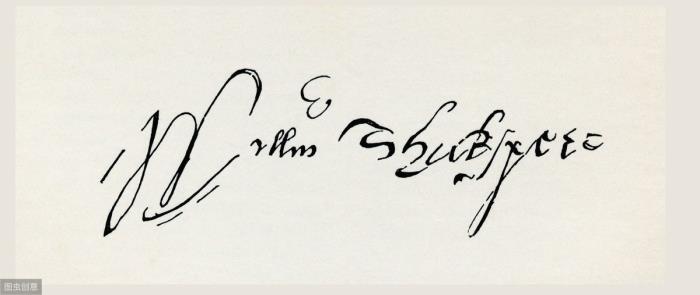 Willm Shakspere
图虫创意